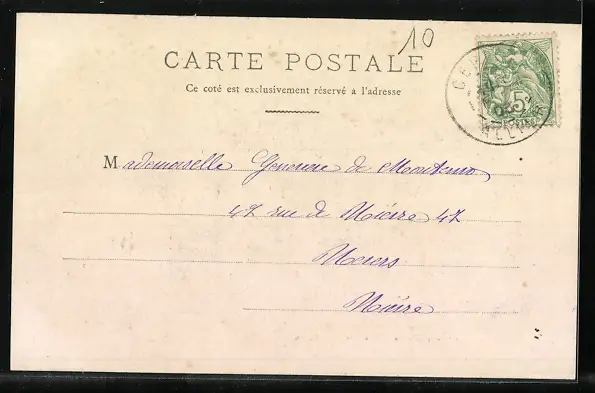 10
CARTE POSTALE
Ce coté est exclusivement réservé à l'adresse
5
Mademoiselle Genevieve de
47 rue de Nièvre 47
Nevers
Nièvre